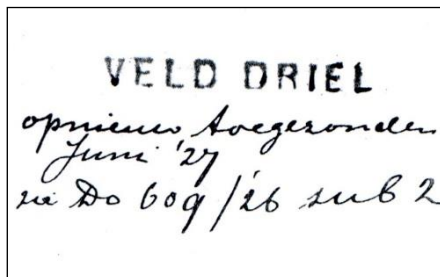 VELD DRIEL
opnieuw toegezonden
Juni '27
zie Do 609/26 sub 2